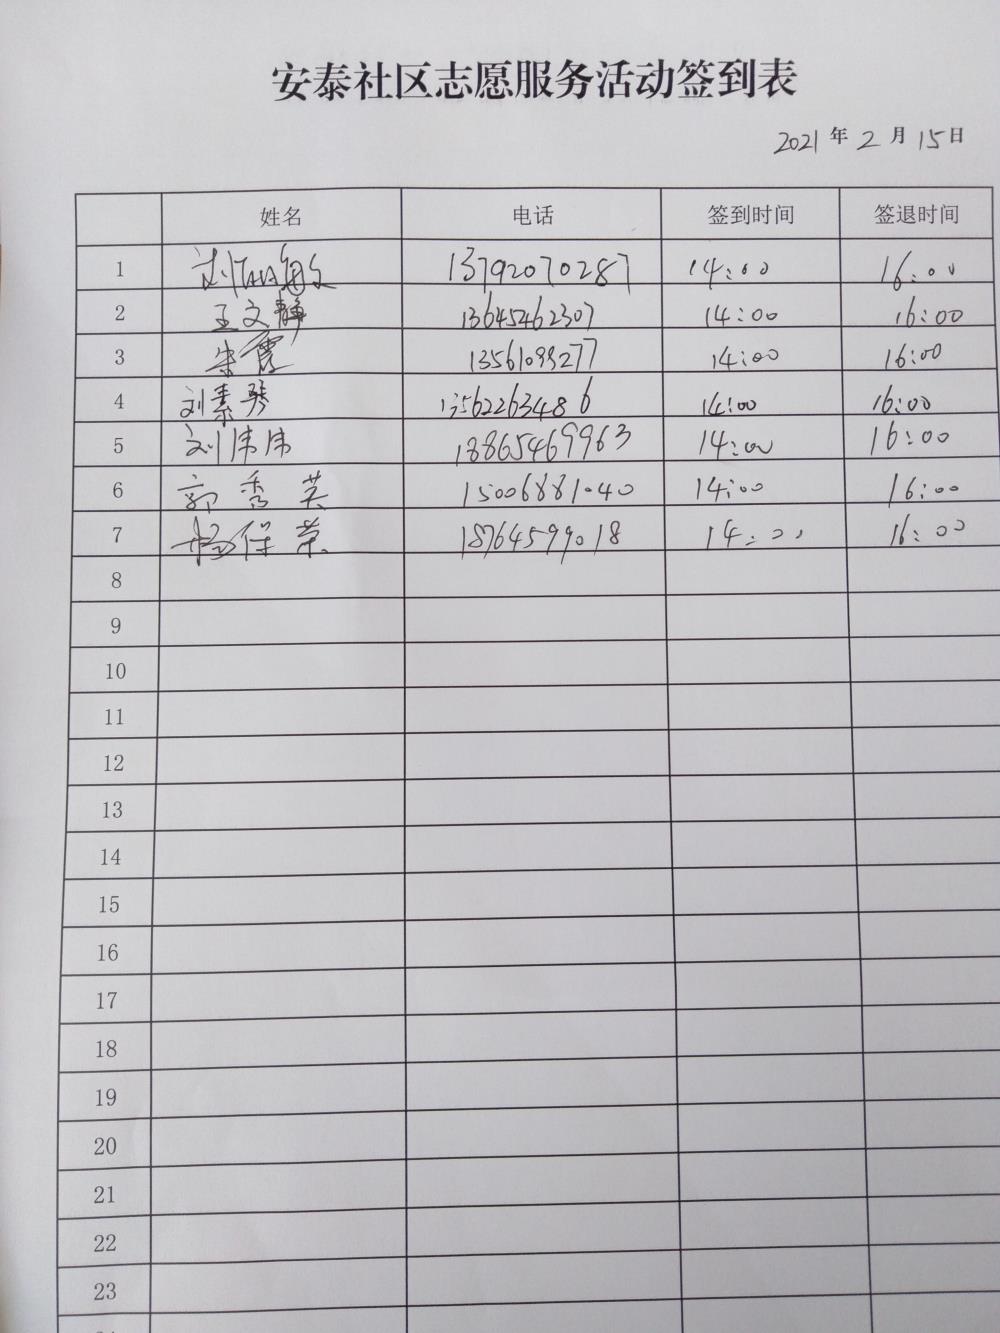 安泰社区志愿服务活动签到表
2021年2月15日
姓名 电话 签到时间 签退时间
1 刘 13792070287 14:00 16:00
2 王文静 13645462307 14:00 16:00
3 朱霞 13561099277 14:00 16:00
4 刘素琴 13562263486 14:00 16:00
5 刘伟伟 18865469963 14:00 16:00
6 郭秀英 15006881040 14:00 16:00
7 杨保荣 18764599018 14:00 16:00
8
9
10
11
12
13
14
15
16
17
18
19
20
21
22
23